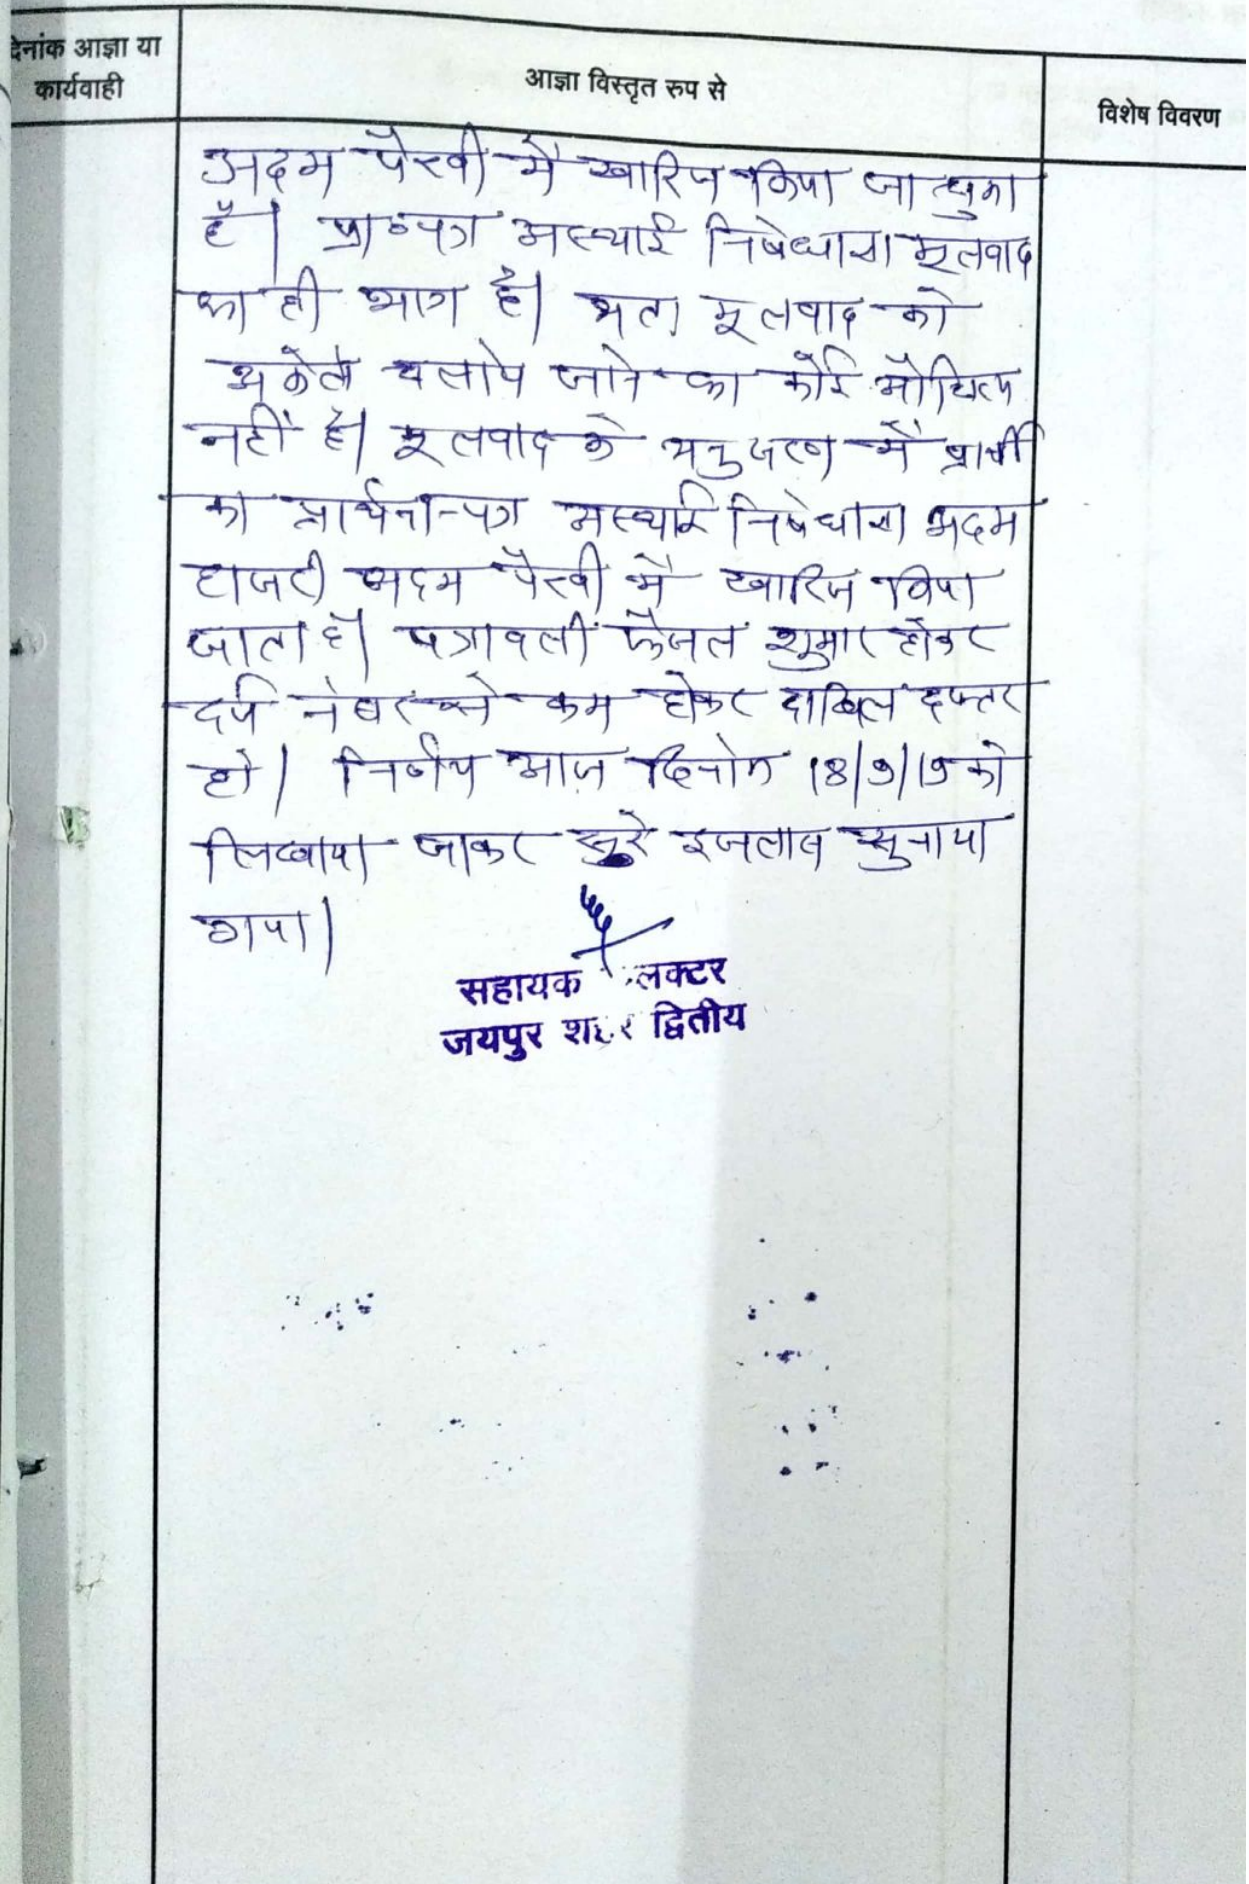 देनांक आज्ञा या
कार्यवाही
आज्ञा विस्तृत रुप से
विशेष विवरण
अदम पैरवी में खारिज किया जा चुका
है। प्रा०पत्र अस्थाई निषेधाज्ञा मूलवाद
का ही भाग है। अतः मूलवाद को
अकेले चलाये जाने का कोई औचित्य
नहीं है। मूलवाद के अनुसरण में प्रार्थी
का प्रार्थना-पत्र अस्थाई निषेधाज्ञा अदम
हाजरी अदम पैरवी में खारिज किया
जाता है। पत्रावली फैसल शुमार होकर
दर्ज नंबर से कम होकर दाखिल दफ्तर
हो। निर्णय आज दिनांक 18/9/19 को
लिखाया जाकर खुले इजलास सुनाया
गया।
सहायक लक्टर
जयपुर शहर द्वितीय